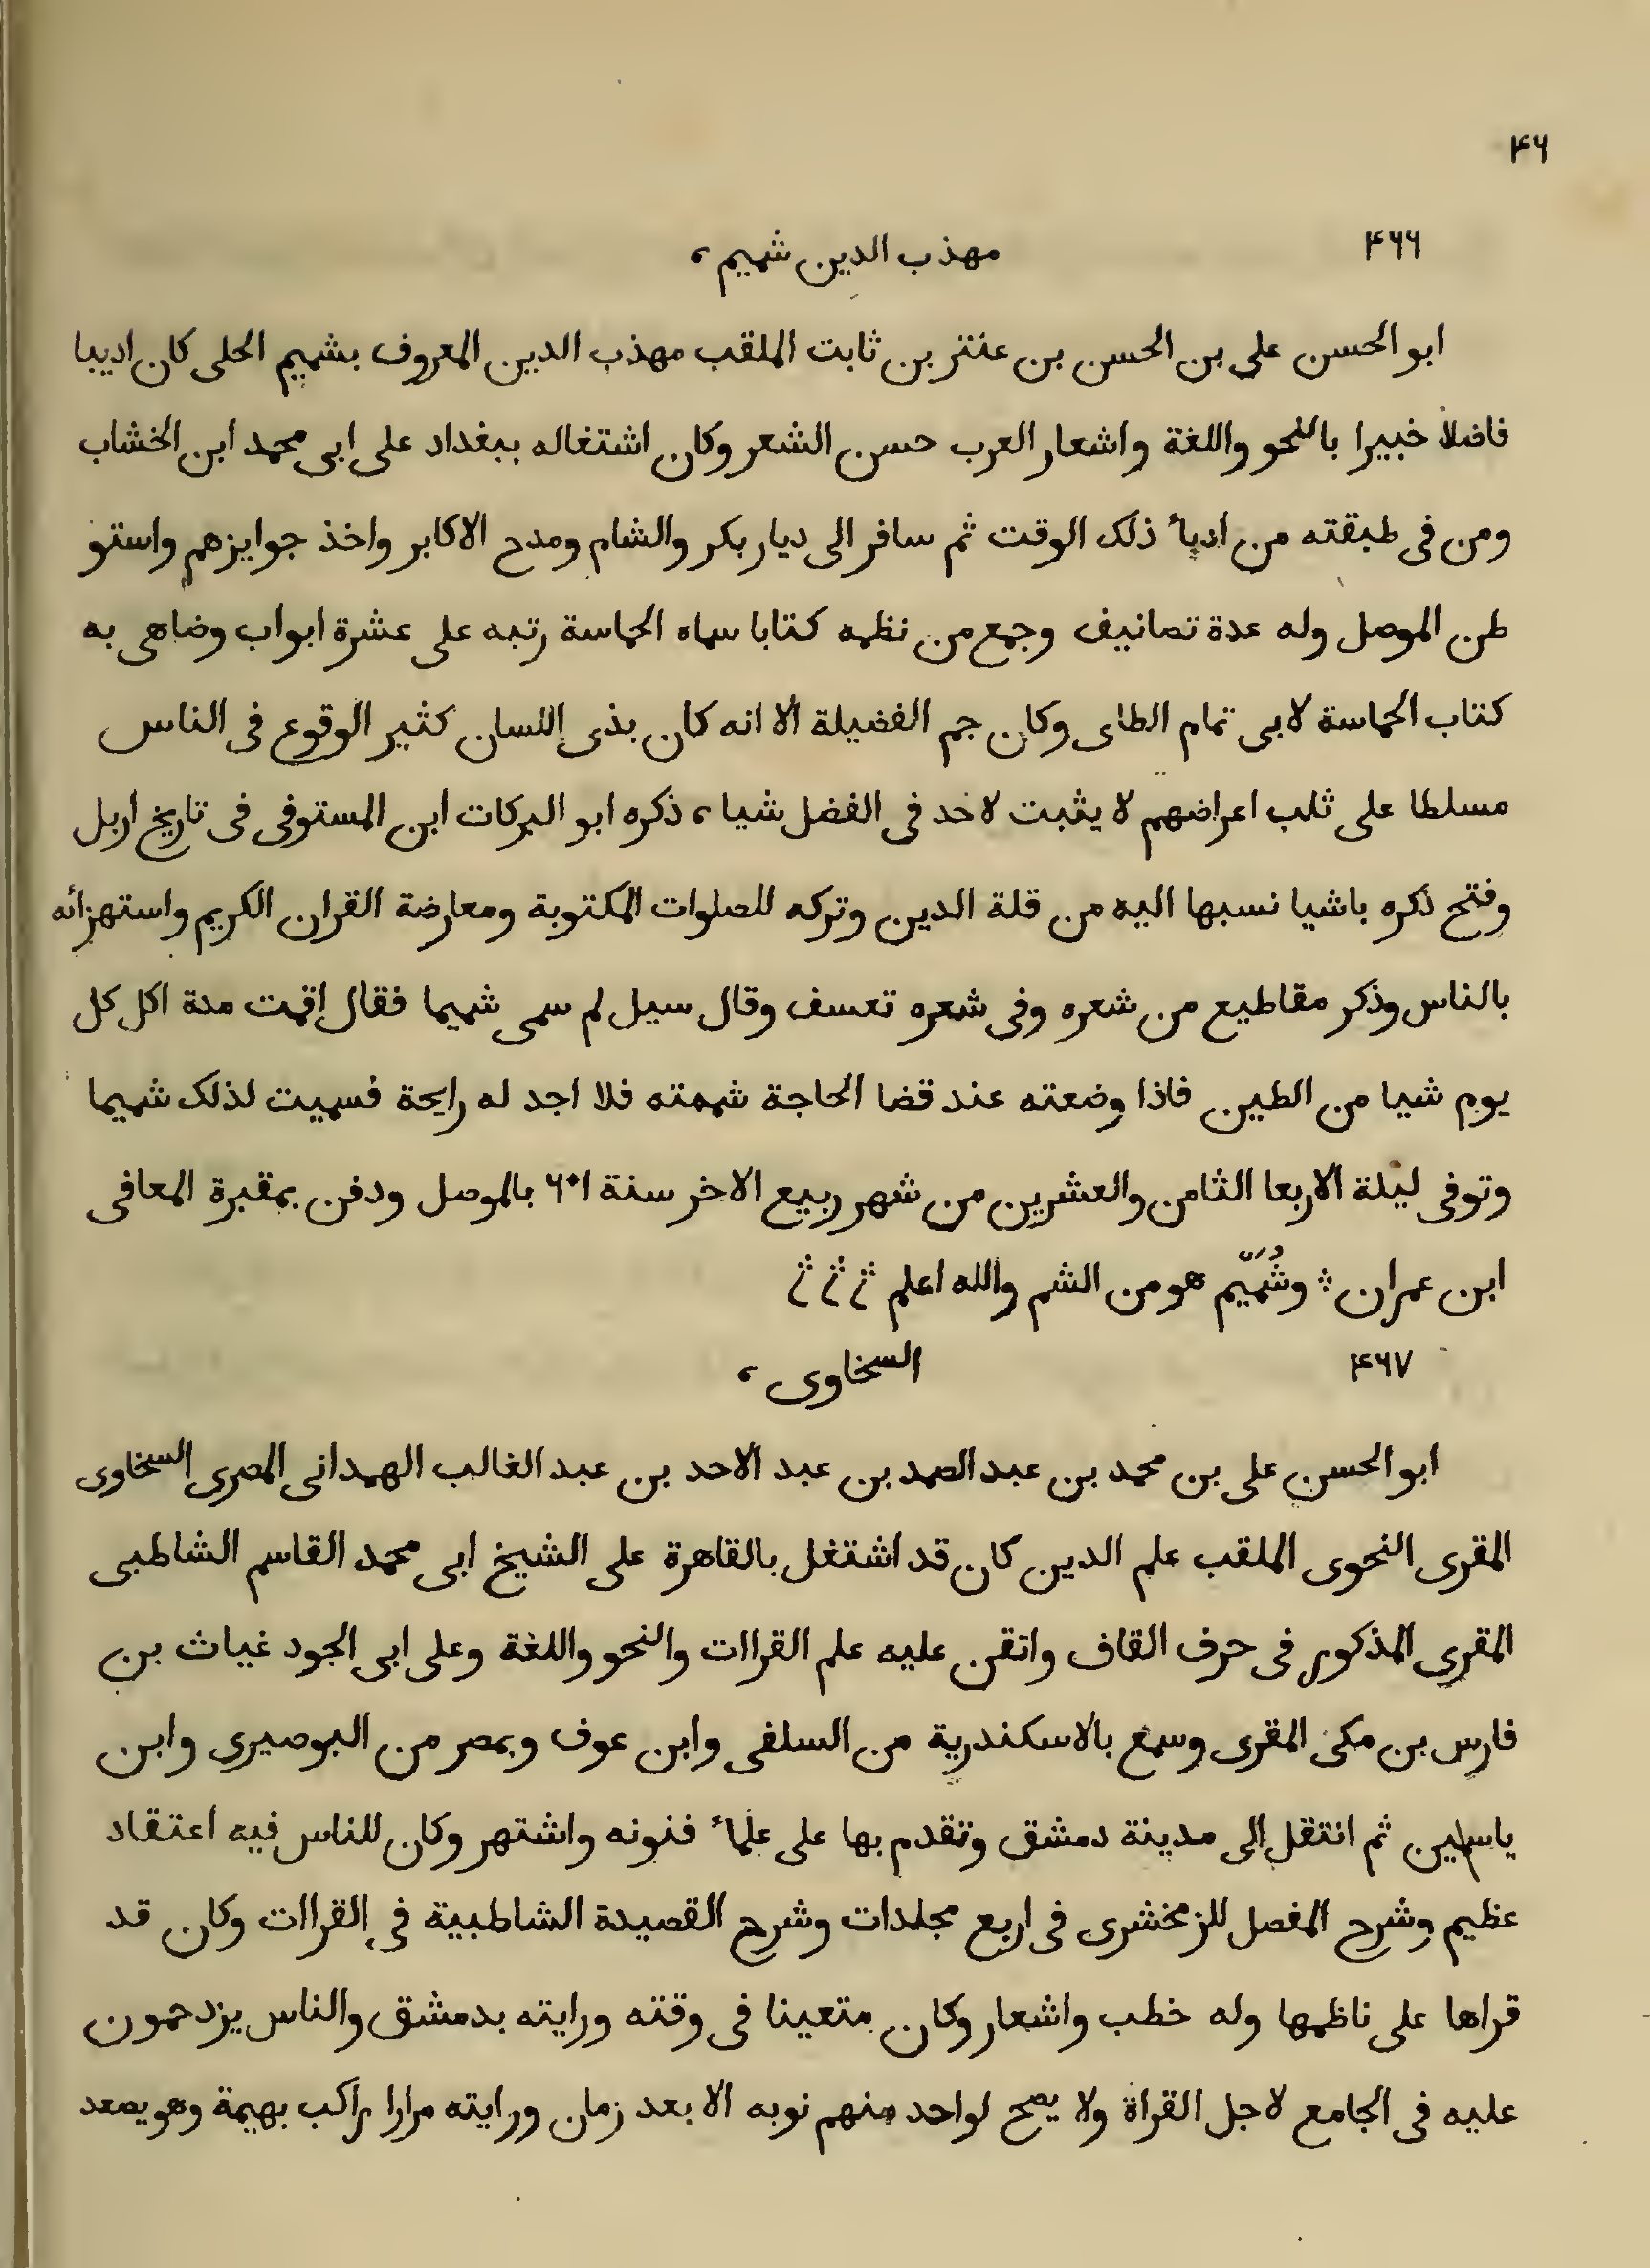 ۴۶
۴۶۶ مهذب الدين شميم ،
ابو الحسن على بن الحسن بن عنتر بن ثابت الملقب مهذب الدين المعروف بشميم الحلى كان اديبا
فاضلا خبيرا بالنحو واللغة واشعار العرب حسن الشعر وكان اشتغاله ببغداد على ابى محمد ابن الخشاب
ومن فى طبقته من ادبأ ذلك الوقت ثم سافر الى ديار بكر والشام ومدح الاكابر واخذ جوايزهم واستو
طن الموصل وله عدة تصانيف وجمع من نظمه كتابا سماه الحماسة رتبه على عشرة ابواب وضاهى به
كتاب الحماسة لابى تمام الطاى وكان جم الفضيلة الا انه كان بذى اللسان كثير الوقوع فى الناس
مسلطا على ثلب اعراضهم لا يثبت لاحد فى الفضل شيا ، ذكره ابو البركات ابن المستوفى فى تاريخ اربل
وفتح ذكره باشيا نسبها اليه من قلة الدين وتركه للصلوات المكتوبة ومعارضة القران الكريم واستهزائه
بالناس وذكر مقاطيع من شعره وفى شعره تعسف وقال سيل لم سمى شميما فقال اقمت مدة اكل كل
يوم شيا من الطين فاذا وضعته عند قضا الحاجة شممته فلا اجد له رايحة فسميت لذلك شميما
وتوفى ليلة الاربعا الثامن والعشرين من شهر ربيع الاخر سنة ۶۰۱ بالموصل ودفن بمقبرة المعافى
ابن عمران ؛ وشُمَيّم هو من الشم والله اعلم
۴۶۷ السخاوى ،
ابو الحسن على بن محمد بن عبد الصمد بن عبد الاحد بن عبد الغالب الهمدانى المصرى السخاوى
المقرى النحوى الملقب علم الدين كان قد اشتغل بالقاهرة على الشيخ ابى محمد القاسم الشاطبى
المقرى المذكور فى حرف القاف واتقن عليه علم القراات والنحو واللغة وعلى ابى الجود غياث بن
فارس بن مكى المقرى وسمع بالاسكندرية من السلفى وابن عوف وبمصر من البوصيرى وابن
ياسين ثم انتقل الى مدينة دمشق وتقدم بها على علمأ فنونه واشتهر وكان للناس فيه اعتقاد
عظيم وشرح المفصل للزمخشرى فى اربع مجلدات وشرح القصيدة الشاطبية فى القراات وكان قد
قراها على ناظمها وله خطب واشعار وكان متعينا فى وقته ورايته بدمشق والناس يزدحمون
عليه فى الجامع لاجل القراة ولا يصح لواحد منهم نوبه الا بعد زمان ورايته مرارا راكب بهيمة وهو يصعد